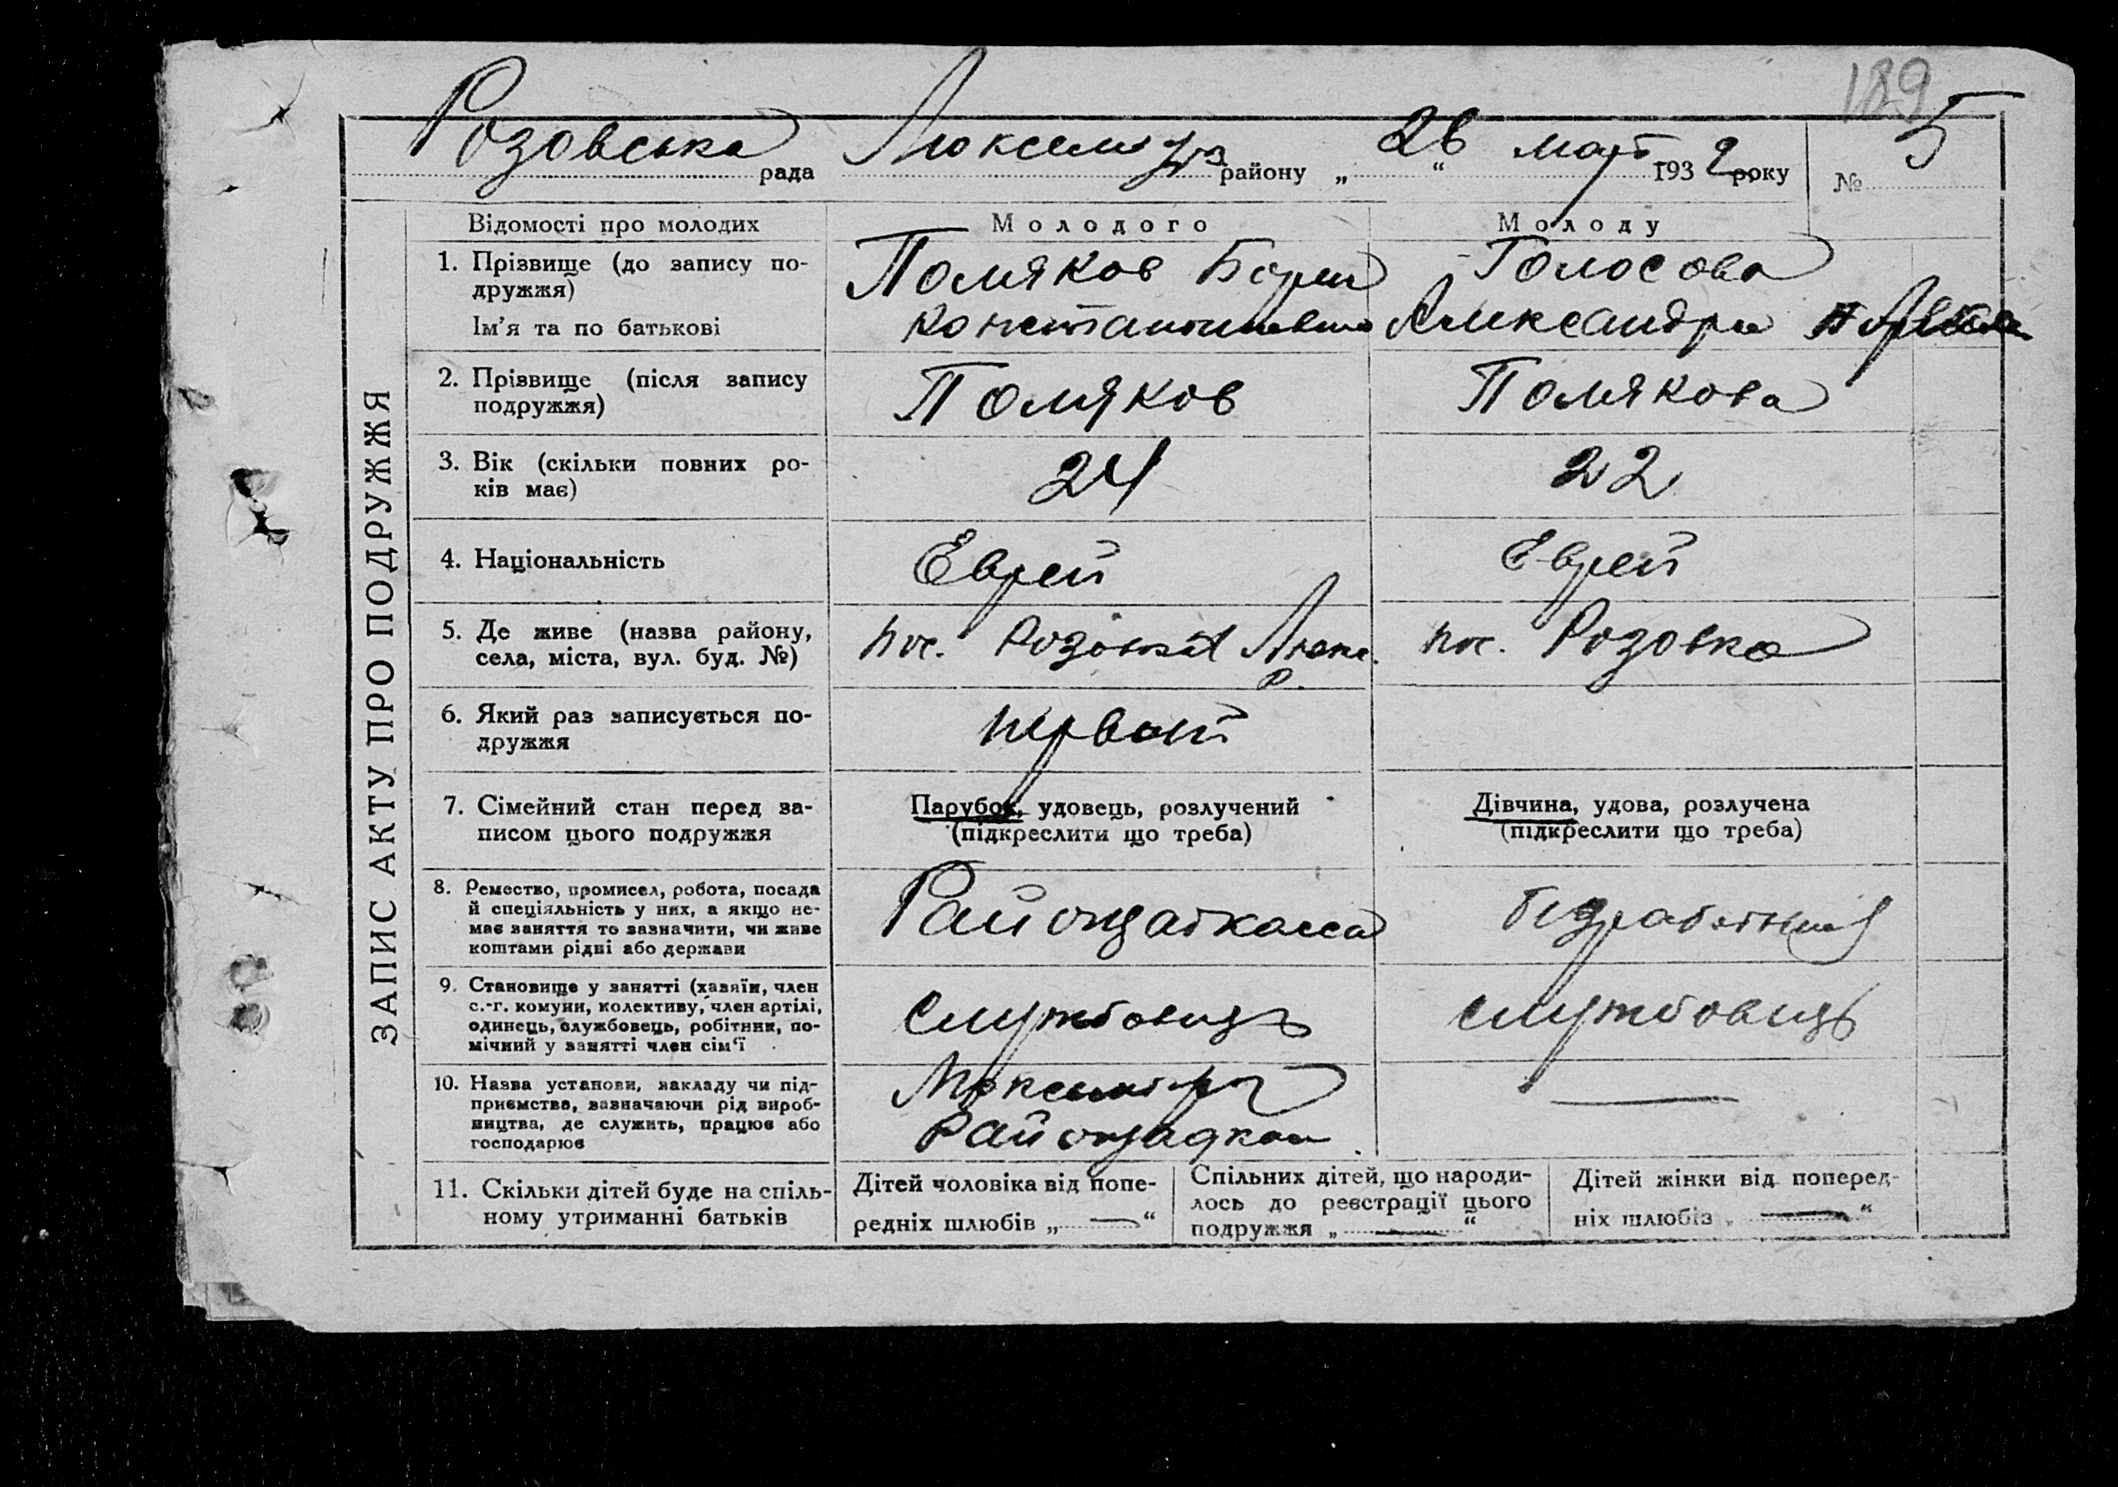 189
Розовська рада Люксембург району „ 26 “ март 1932 року № 5
ЗАПИС АКТУ ПРО ПОДРУЖЖЯ
Відомості про молодих
Молодого
Молоду
1. Прізвище (до запису по-
дружжя)
Ім'я та по батькові
Поляков Борис
Константинович
Голосова
Александра
2. Прізвище (після запису
подружжя)
Поляков
Полякова
3. Вік (скільки повних ро-
ків має)
24
22
4. Національність
Еврей
Еврей
5. Де живе (назва району,
села, міста, вул. буд. №)
пос. Розовка Люкс.
р.
пос. Розовка
6. Який раз записується по-
дружжя
первый
7. Сімейний стан перед за-
писом цього подружжя
Парубок, удовець, розлучений
(підкреслити що треба)
Дівчина, удова, розлучена
(підкреслити що треба)
8. Ремество, промисел, робота, посада
й спеціяльність у них, а якщо не-
має заняття то зазначити, чи живе
коштами рідні або держави
Райощадкасса
безработный
9. Становище у занятті (хазяїн, член
с.-г. комуни, колективу, член артілі,
одинець, службовець, робітник, по-
мічний у занятті член сім'ї
службовець
службовець
10. Назва установи, закладу чи під-
приємства, зазначаючи рід вироб-
ництва, де служить, працює або
господарює
Райощадкас
11. Скільки дітей буде на спіль-
ному утриманні батьків
Дітей чоловіка від попе-
редніх шлюбів „ — “
Спільних дітей, що народи-
лось до реєстрації цього
подружжя „ — “
Дітей жінки від поперед-
ніх шлюбів „ — “